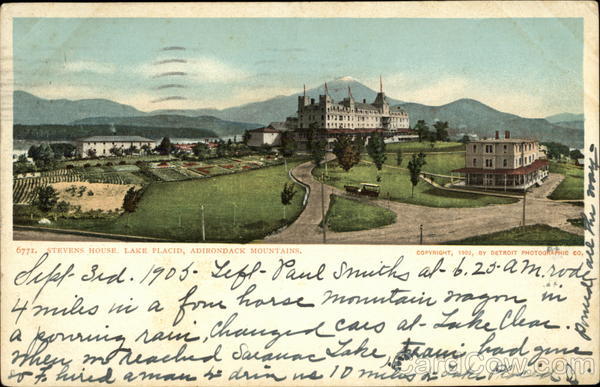 6771. STEVENS HOUSE. LAKE PLACID, ADIRONDACK MOUNTAINS.
COPYRIGHT, 1902, BY DETROIT PHOTOGRAPHIC CO.
Sept 3rd. 1905 - Left Paul Smiths at 6.25 A.M. rode
4 miles in a four horse mountain wagon in
a pouring rain, Changed cars at Lake Clear.
When we reached Saranac Lake, train had gone
so I hired a man to drive us 10 miles to Lake Placid
Poured all the way.
CardCow.com